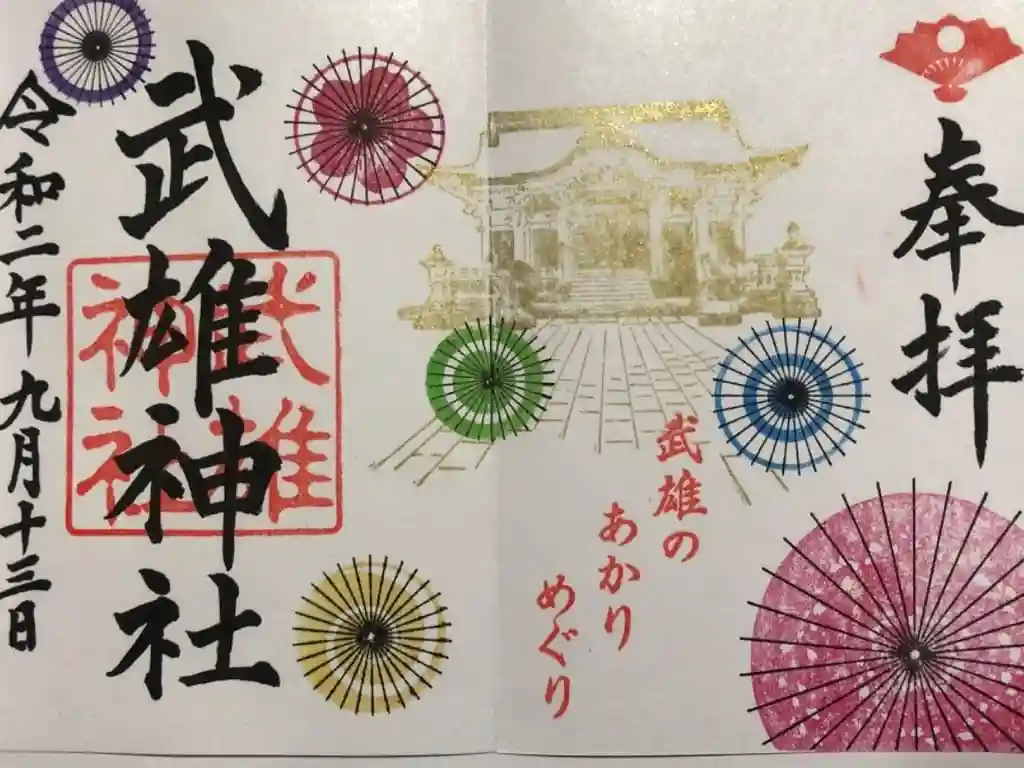 奉拝
武雄の
あかり
めぐり
武雄神社
武雄
神社
令和二年九月十三日